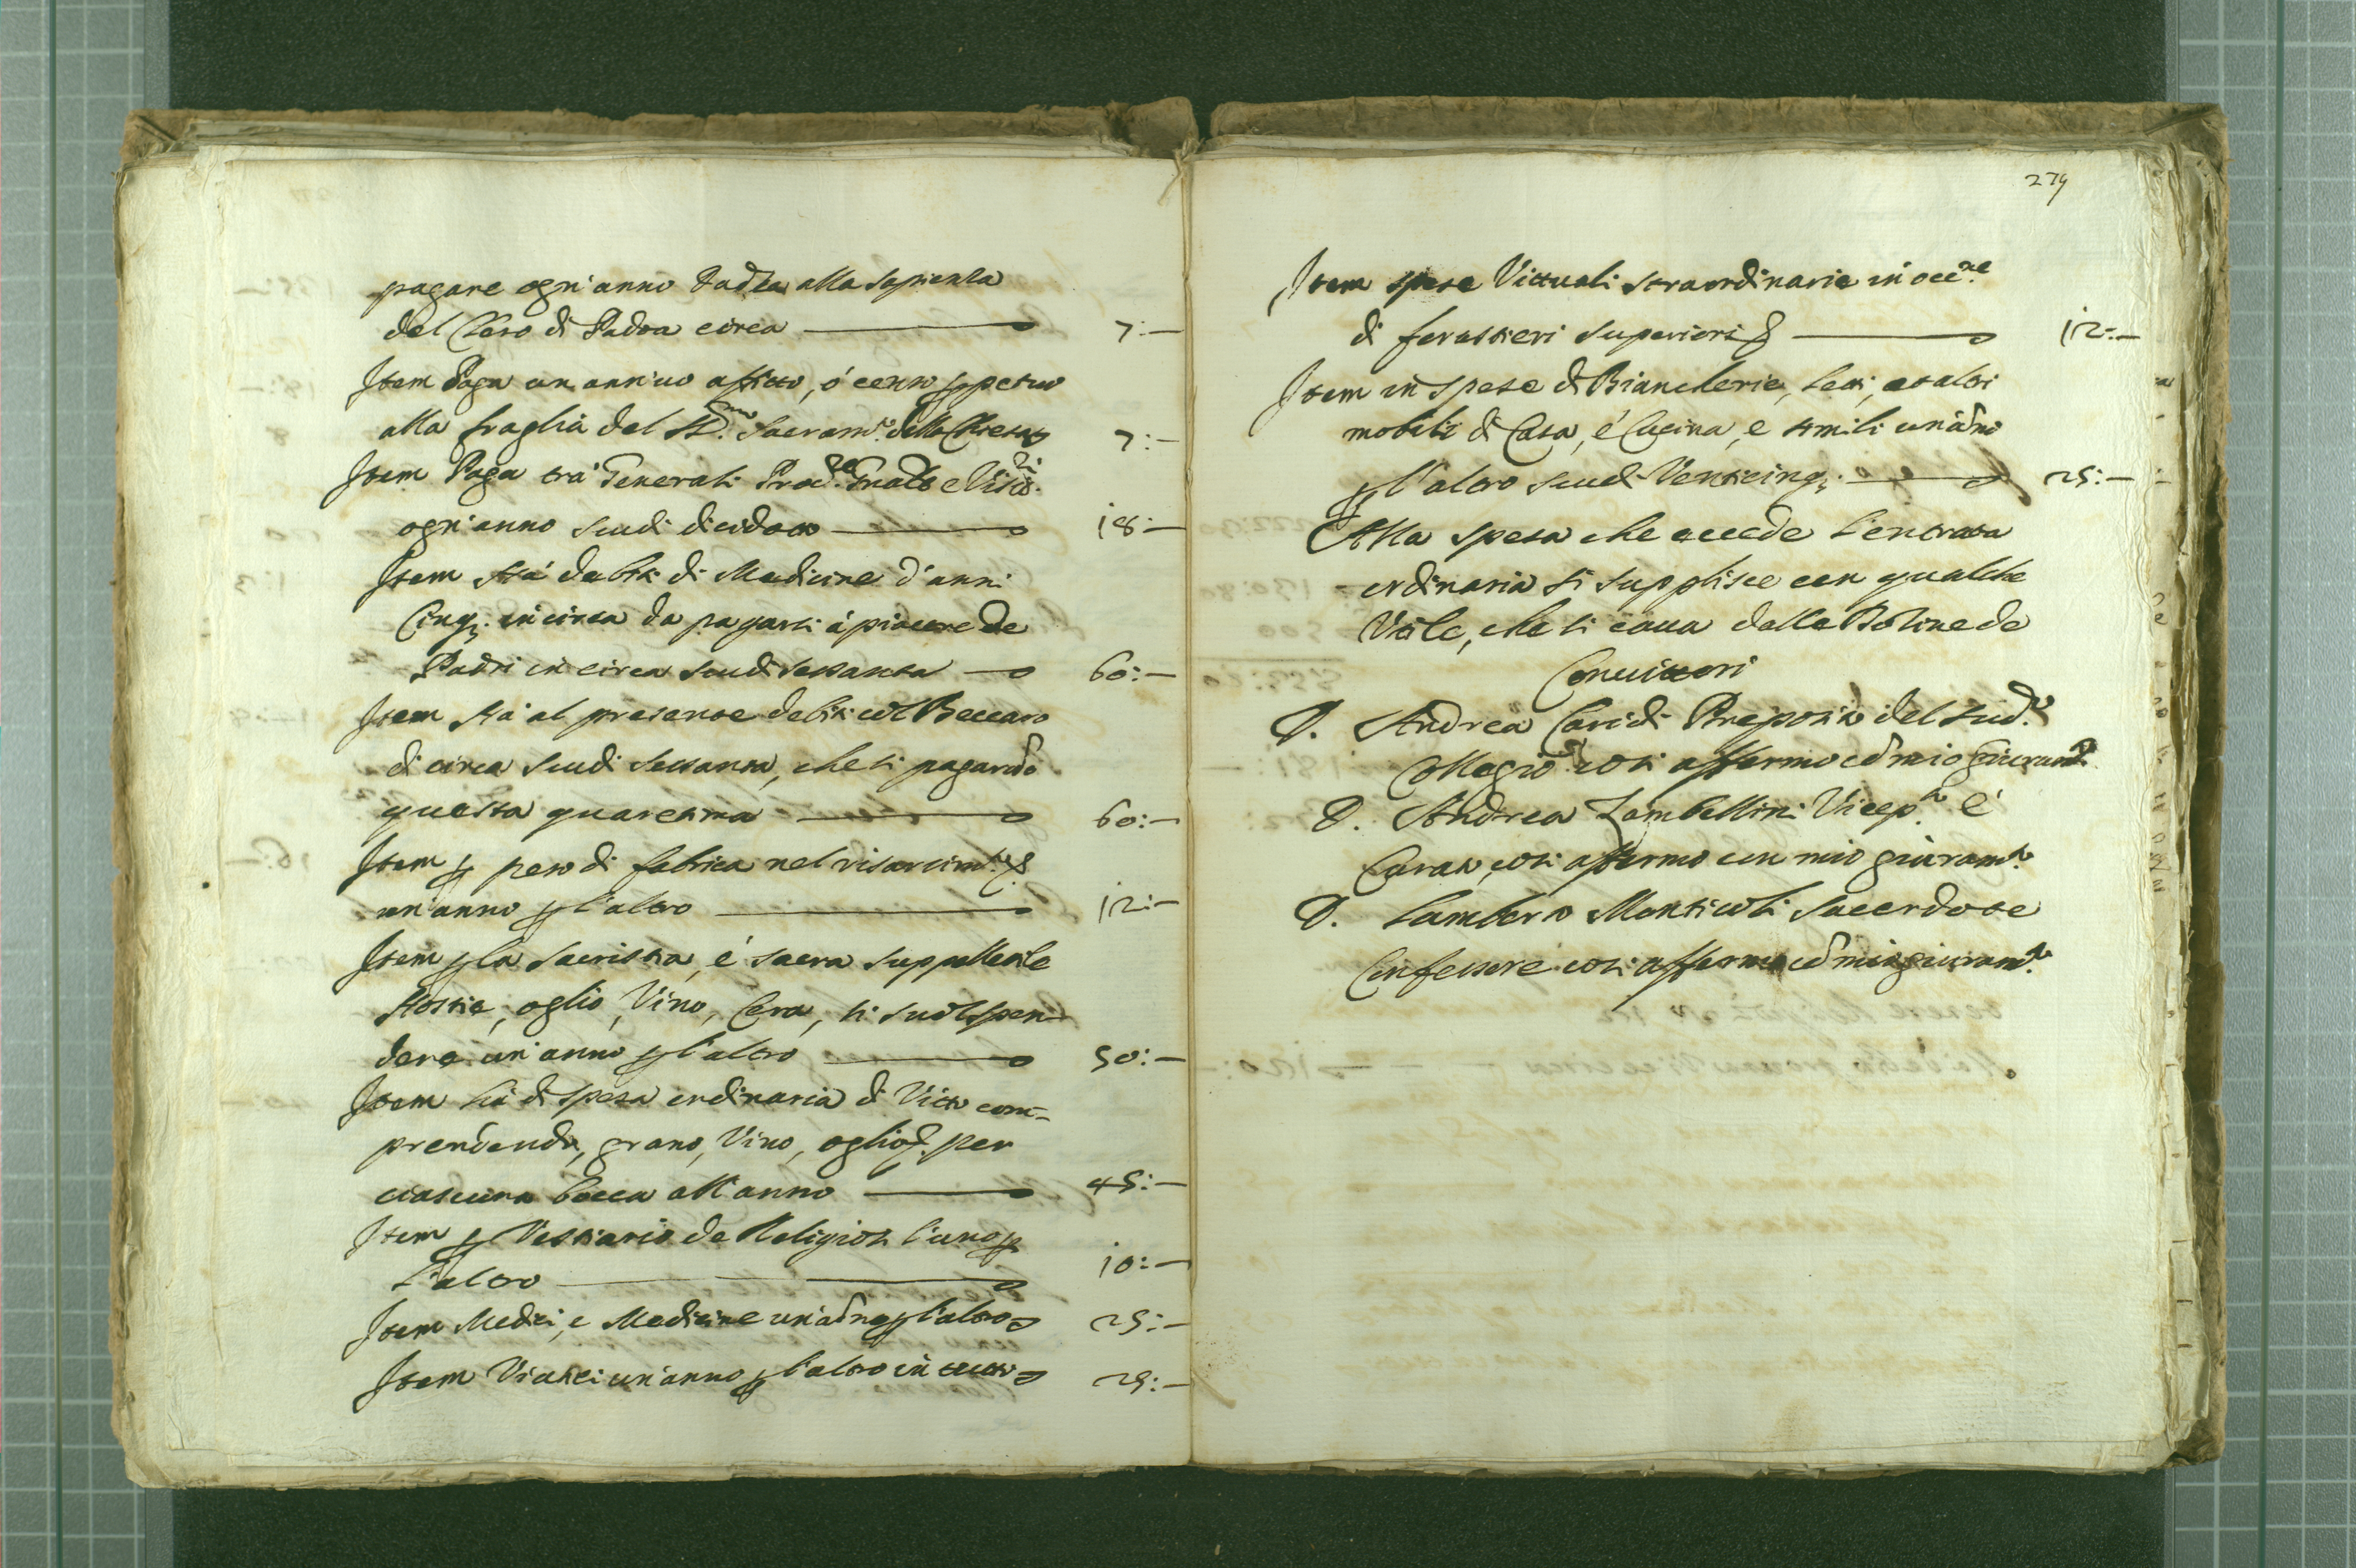 pagare ogn'anno Tadla alla sapienza
del Clero di Padoa circa 7:—
Item Paga un annuo affitto, ó censo ꝑpetuo
alla fraglia del SS.mo Sacram.to della Chiesa 7:—
Item Paga trá Generali Proc.re e Visit.ri
ogn'anno scudi dieidotto 18:—
Item Há debiti di Medicine d'anni
Cinq; in circa da pagarsi á piacere de
Padri in circa scudi sessanta 60:—
Item há al presente debiti col Beccaro
di circa scudi sessanta, che si pagarãno
questa quaresima 60:—
Item ꝑ peso di fabrica nel risarcim.to &
un'anno ꝑ l'altro 12:—
Item ꝑ la sacristia, é sacra suppelletile
Hostie, oglio, Vino, Cera, si suol spen-
dere un'anno ꝑ l'altro 50:—
Item há di spesa ordinaria di Vitto com-
prendendo, grano, Vino, oglio &. per
ciascuna bocca all'anno 45:—
Item ꝑ Vestiario de Religiosi l'uno ꝑ
l'altro 10:—
Item Medici, e Medicine un'ãno ꝑ l'altro 25:—
Item Viatici un'anno ꝑ l'altro in tutto 25:—
279
Item spese Vittuali straordinarie in occ.ne
di forastieri superiori & 12:—
Item in spese di Biancherie, letti, et altri
mobili di Casa, é Cucina, e simili un'ãno
ꝑ l'altro scudi Venticinq; 25:—
Alla spesa che eccede l'entrata
ordinaria si supplisce con qualche
Utile, che si caua dalle Dozine de
Conuittori
D. Andrea Caridi Preposito del sud.to
Collegio cosi affermo cõ mio giuram.to
D. Andrea Zambellini Vicep.to é
Curato, cosi affermo con mio giuram.to
D. Lamberto Monticoli Sacerdote
Confessore cosi affermo cõ mio giuram.to